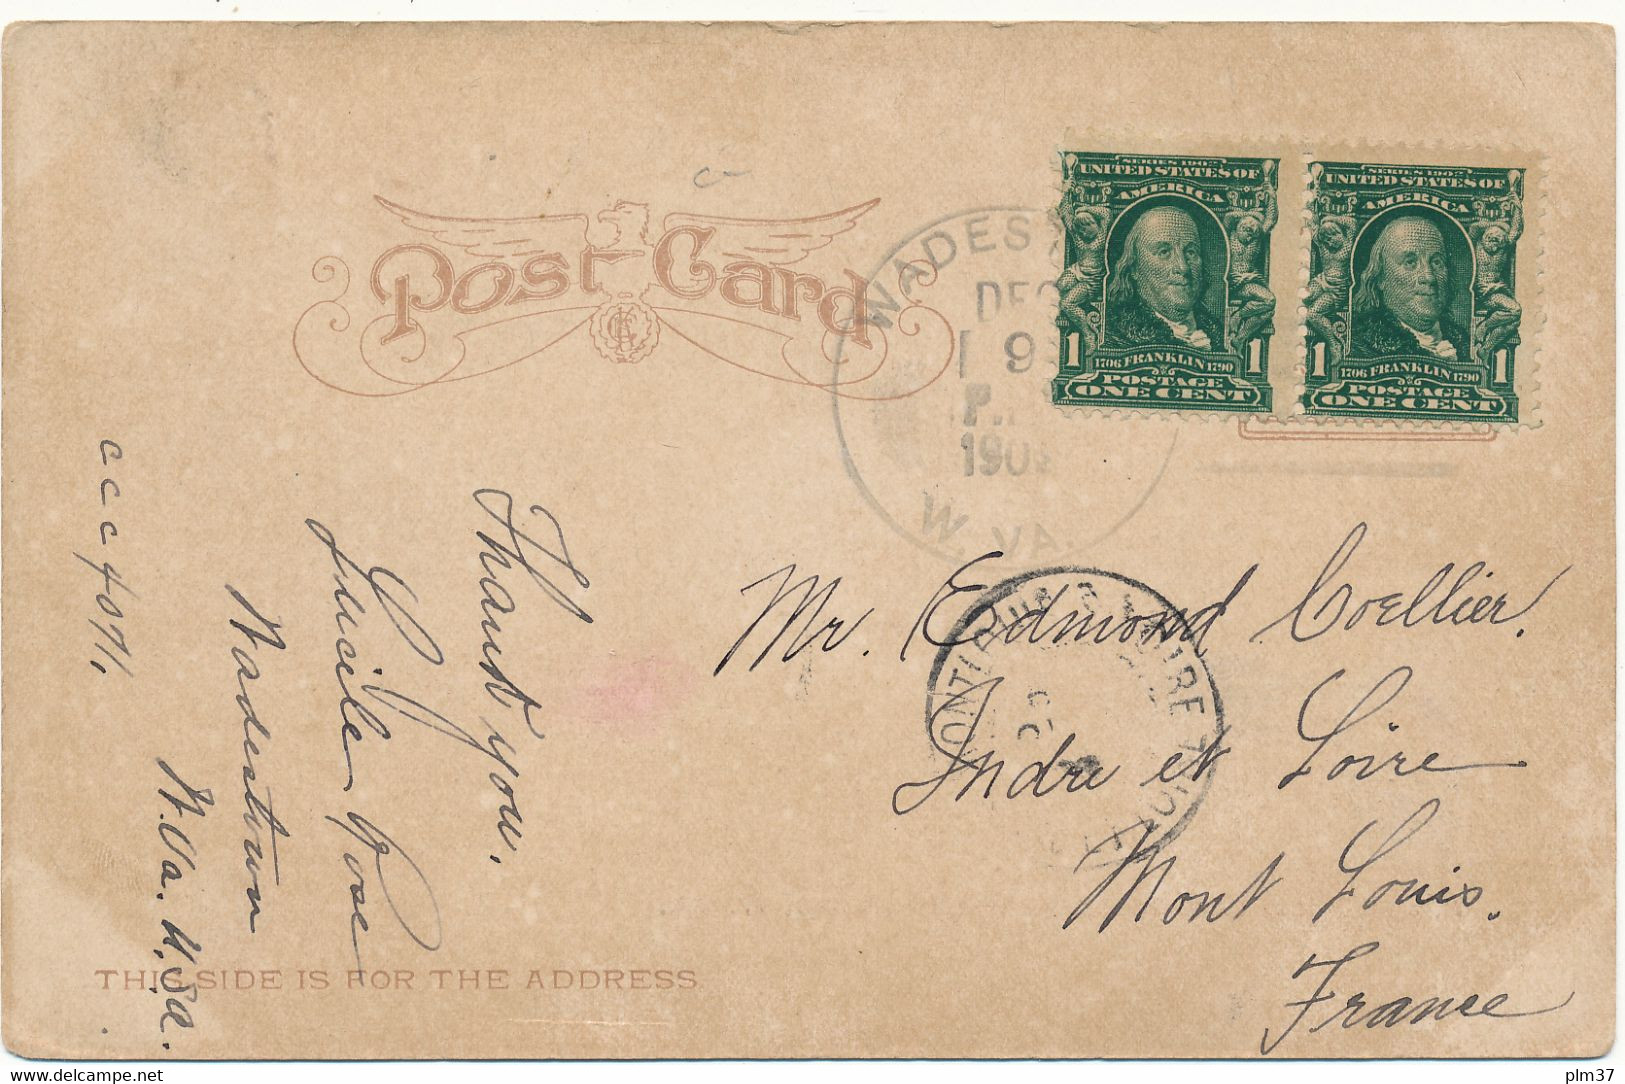 Post Card
WADEST
DEC
9
P.
190
W. VA.
SERIES 1902
UNITED STATES OF
AMERICA
1 1706 FRANKLIN 1790 1
POSTAGE
ONE CENT
SERIES 1902
UNITED STATES OF
AMERICA
1 1706 FRANKLIN 1790 1
POSTAGE
ONE CENT
Mr. Edmond Coellier.
Indre et Loire
Mont Louis.
France
Thank you.
Lucile Rose
Wadestown
W. Va. U.S.a.
c c c 4071.
THIS SIDE IS FOR THE ADDRESS
www.delcampe.net
plm37